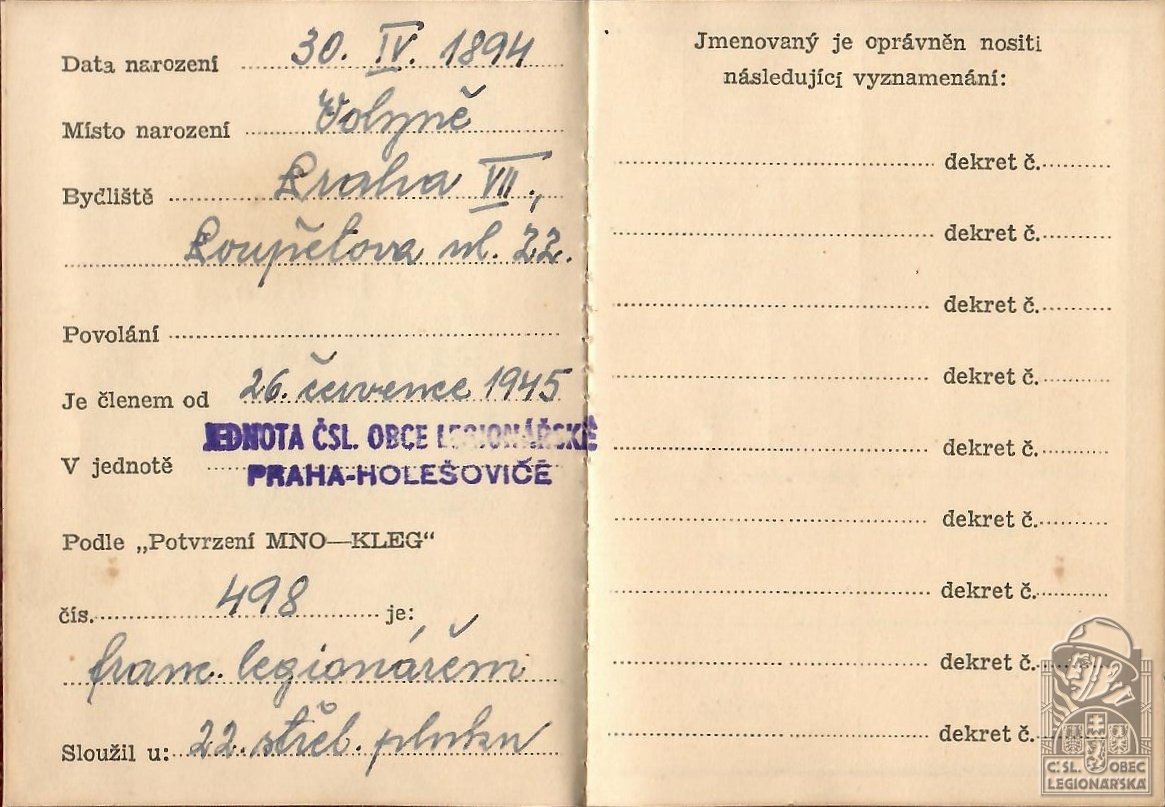 Data narození 30. IV. 1894
Místo narození Volyně
Bydliště Praha VII.,
Poupětova ul. 22.
Povolání
Je členem od 26. července 1945
V jednotě JEDNOTA ČSL. OBCE LEGIONÁŘSKÉ
PRAHA-HOLEŠOVICE
Podle „Potvrzení MNO—KLEG“
čís. 498 je:
franc. legionářem
Sloužil u: 22. střel. pluku
Jmenovaný je oprávněn nositi
následující vyznamenání:
dekret č.
dekret č.
dekret č.
dekret č.
dekret č.
dekret č.
dekret č.
dekret č.
dekret č.
Č.SL. OBEC
LEGIONÁŘSKÁ